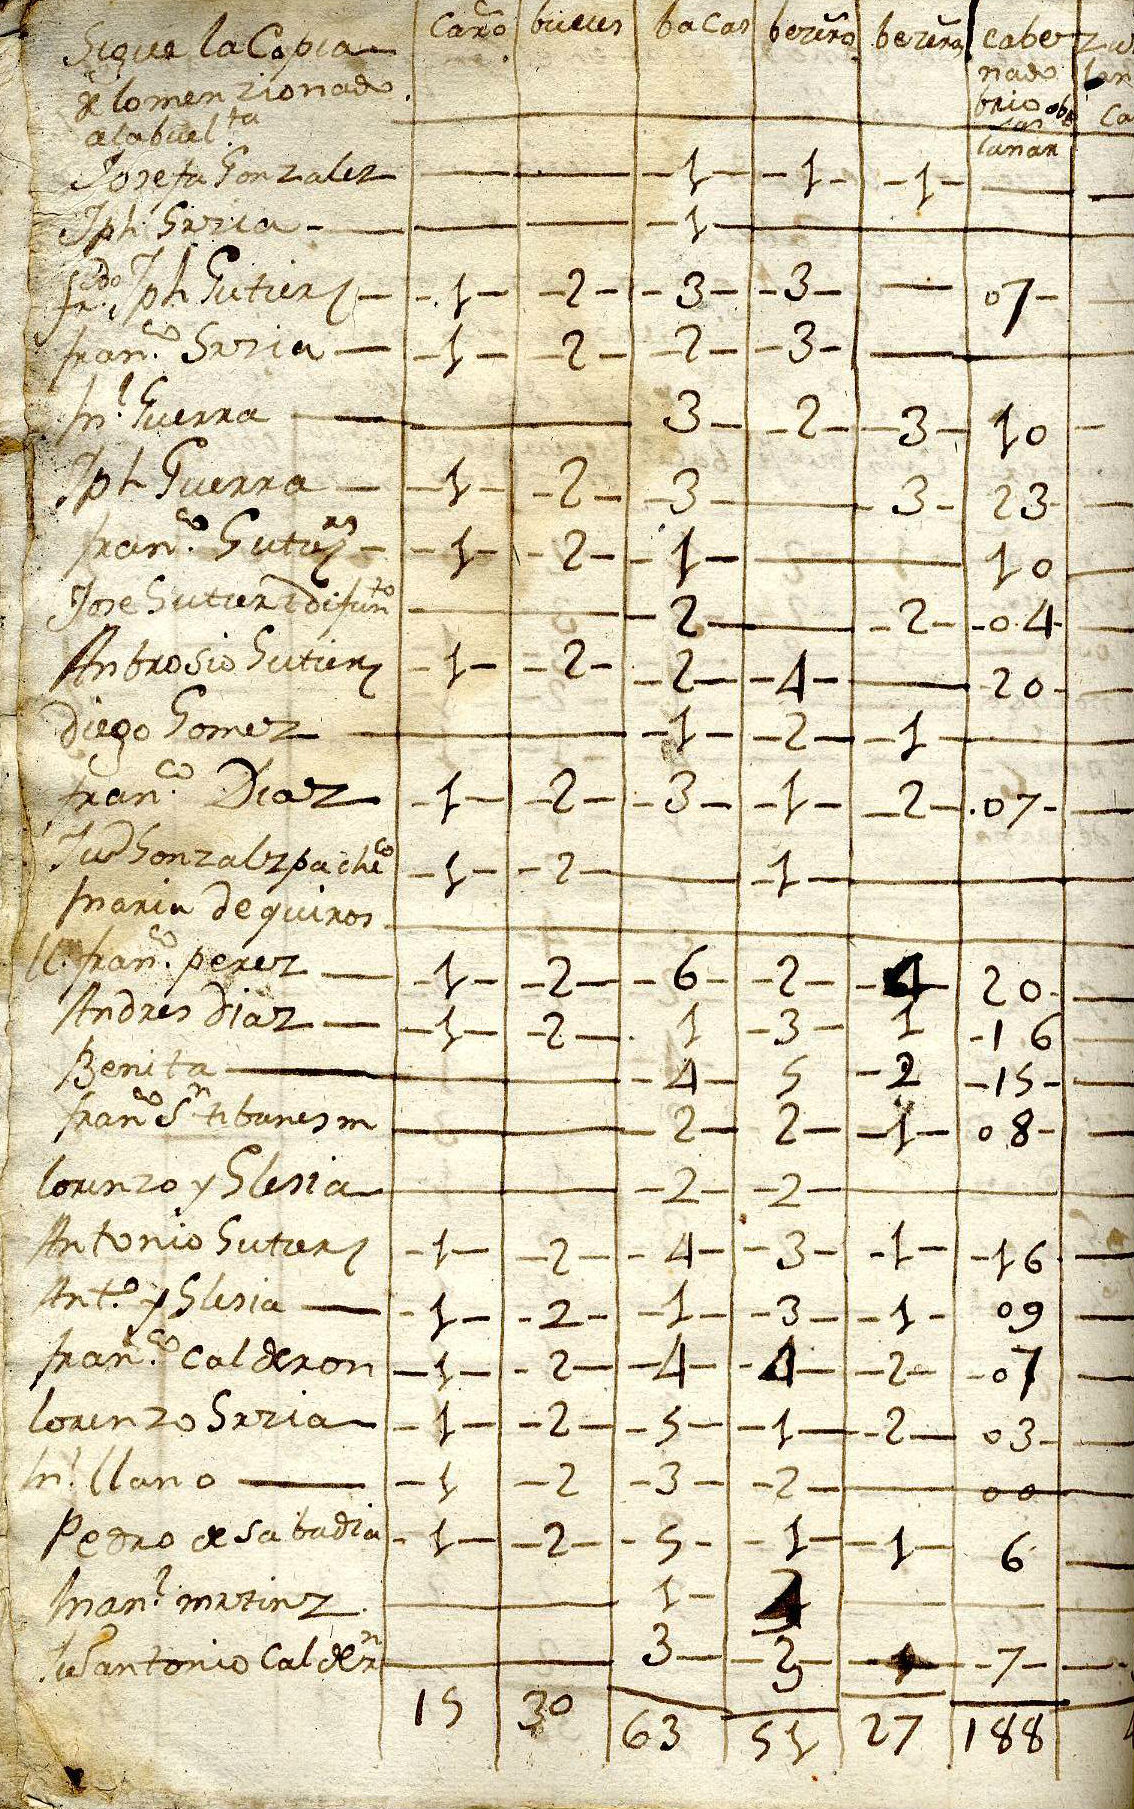 Sigue la Copia carro bueies bacas bezerro bezerra cabe
de lo menzionado nado
a la buelta brio
lanar
Josefa Gonzalez — — 1 1 1 —
Jph Garzia — — 1 — — —
Jph Gutierz 1 2 3 3 — 07
franco Garzia 1 2 2 3 — —
ml Guerra — — 3 2 3 10
Jph Guerra 1 2 3 — 3 23
franco Gutierz 1 2 1 — — 10
Jose Gutierz difunto — — 2 — 2 04
Anbrosio Gutierz 1 2 2 4 — 20
diego Gomez — — 1 2 1 —
franco Diaz 1 2 3 1 2 07
Ju Gonzalz pacheco 1 2 — 1 — —
maria de quiros — — — — — —
franco perez 1 2 6 2 4 20
Andres diaz 1 2 1 3 1 16
Benita — — 4 5 2 15
franco Sn — — 2 2 1 08
lorenzo yglesia — — 2 2 — —
Antonio Gutierz 1 2 4 3 1 16
Anto yglesia 1 2 1 3 1 09
franco calderon 1 2 4 4 2 07
lorenzo Garzia 1 2 5 1 2 03
ml llano 1 2 3 2 — 00
Pedro de sabadia 1 2 5 1 1 6
manl martinz — — 1 — —
Ju antonio calden — — 3 3 1 7
15 30 63 51 27 188